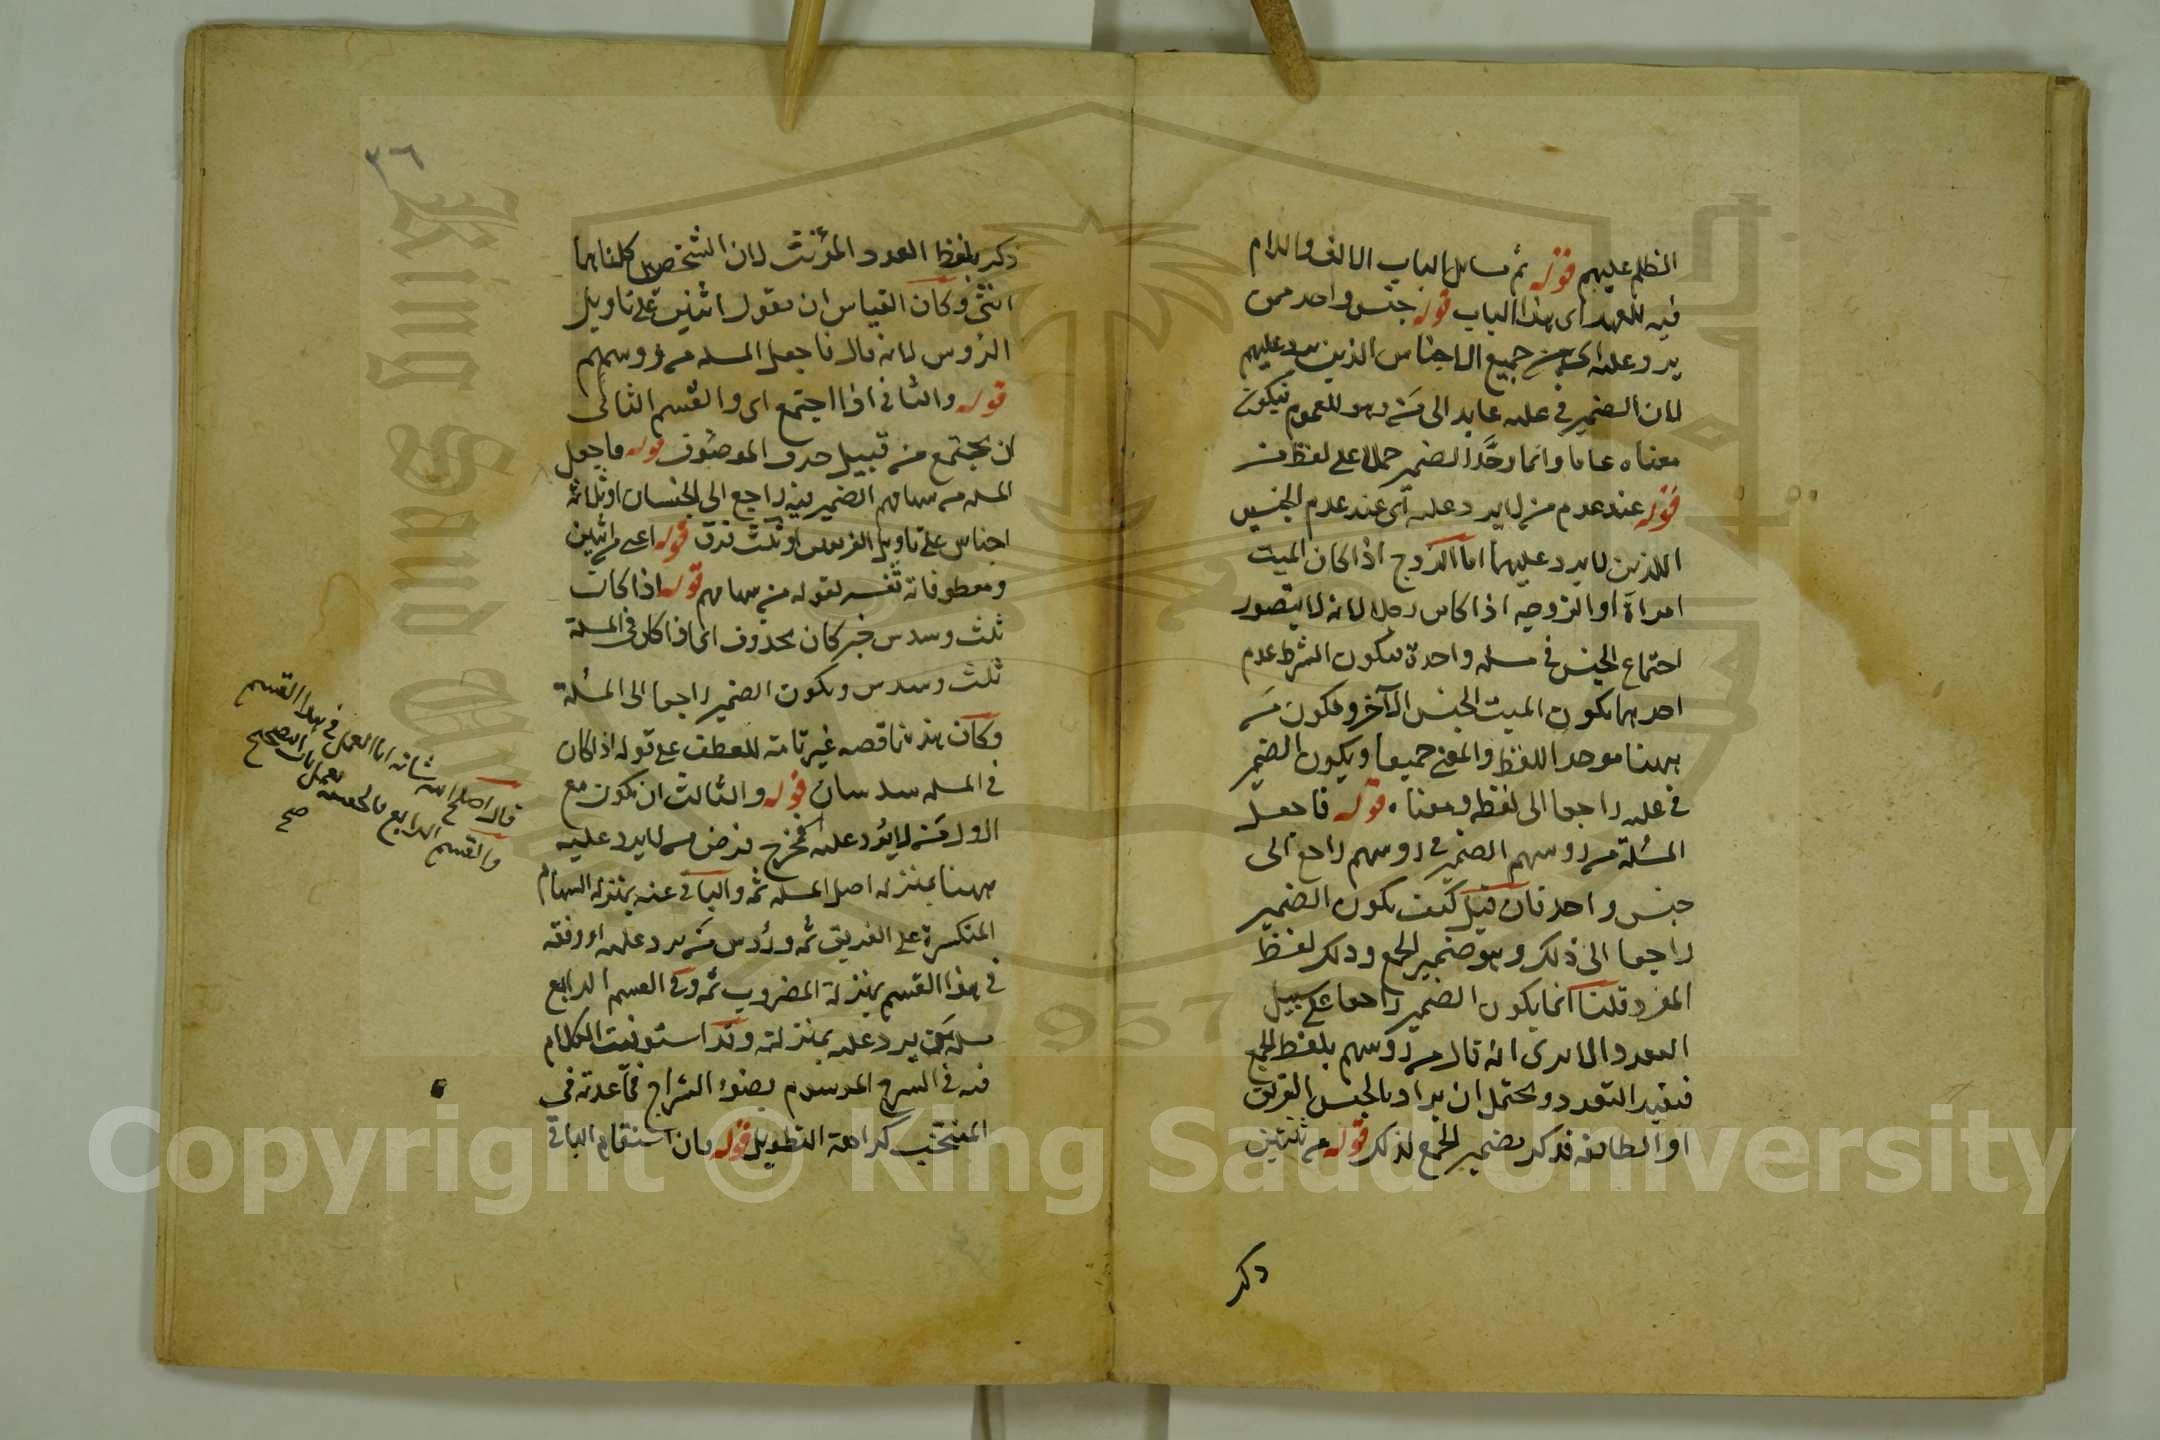 الظلم عليهم قوله ثم مسايل الباب الالف واللام
فيه للعهد اى هذا الباب قوله جنس واحد ممن
يرد عليه اى من جميع الاجناس الذين يرد عليهم
لان الضمير فى عليه عايد الى من وهو للعموم فيكون
معناه عاما وانما وحد الضمير حملا على لفظ من
قوله عند عدم من لا يرد عليه اى عند عدم الجنسين
اللذين لا يرد عليهما اما الزوج اذا كان الميت
امراة او الزوجيه اذا كان رجلا لانه لا يتصور
اجتماع الجنس فى مسله واحدة فيكون الشرط عدم
احدهما بكون الميت الجنس الآخر وفيكون من
ههنا موحد اللفظ والمعنى جميعا ويكون الضمير
فى عليه راجعا الى لفظه ومعناه قوله فاجعل
المسئلة من روسهم الضمير فى روسهم راجع الى
جنس واحد فان قيل كيف يكون الضمير
راجعا الى ذلك وهو ضمير الجمع وذلك لفظ
المفرد قلنا انما يكون الضمير راجعا على سبيل
التعدد الا يرى انه قال من روسهم بلفظ الجمع
فيفيد التعدد ويحتمل ان يراد بالجنس الفريق
او الطائفه فذكر بضمير الجمع لذلك قوله من ثنتين
ذكر
٣٦
ذكر بلفظ العدد المؤنث لان الشخصين كلتاهما
انثى وكان القياس ان يقول اثنين على تاويل
الرؤس لانه قال فاجعل المسله من رؤوسهم
قوله والثانى اذا اجتمع اى والقسم الثانى
ان يجتمع من قبيل حذف الموصوف قوله فاجعل
المسله من سهامهم الضمير فيه راجع الى الجنسان او ثلاثة
اجناس على تاويل الفريقين او ثلث فرق قوله اعنى من اثنين
ومعطوفاته تفسير لقوله من سهامهم قوله اذا كان
ثلث وسدس خبر كان محذوف اى اذا كان فى المسلة
ثلث وسدس ويكون الضمير راجعا الى المسئلة
وكان هذه ناقصه غير تامة للعطف على قوله اذا كان
فى المسله سدسان قوله والثالث ان يكون مع
الاول من لا يرد عليه مخرج فرض من لا يرد عليه
ههنا بمنزله اصل المسله ثمه والباقى عنه بمنزله السهام
المنكسرة على الفريق ثمه ورؤس من يرد عليه او وفقه
فى هذا القسم بمنزلة المضروب ثمه وفى القسم الرابع
مسله من يرد عليه بمنزلته وقد استوفيت الكلام
فيه فى الشرح الموسوم بضوء السراج فما عدته فى
المنتخب كراهة التطويل قوله فان استقام الباقى
قال اصلح الله شانه اما العمل فى هذا القسم
والقسم الرابع فالحقيقة بعمل باب التصحيح
صح
Copyright © King Saud University
King Saud University
1957